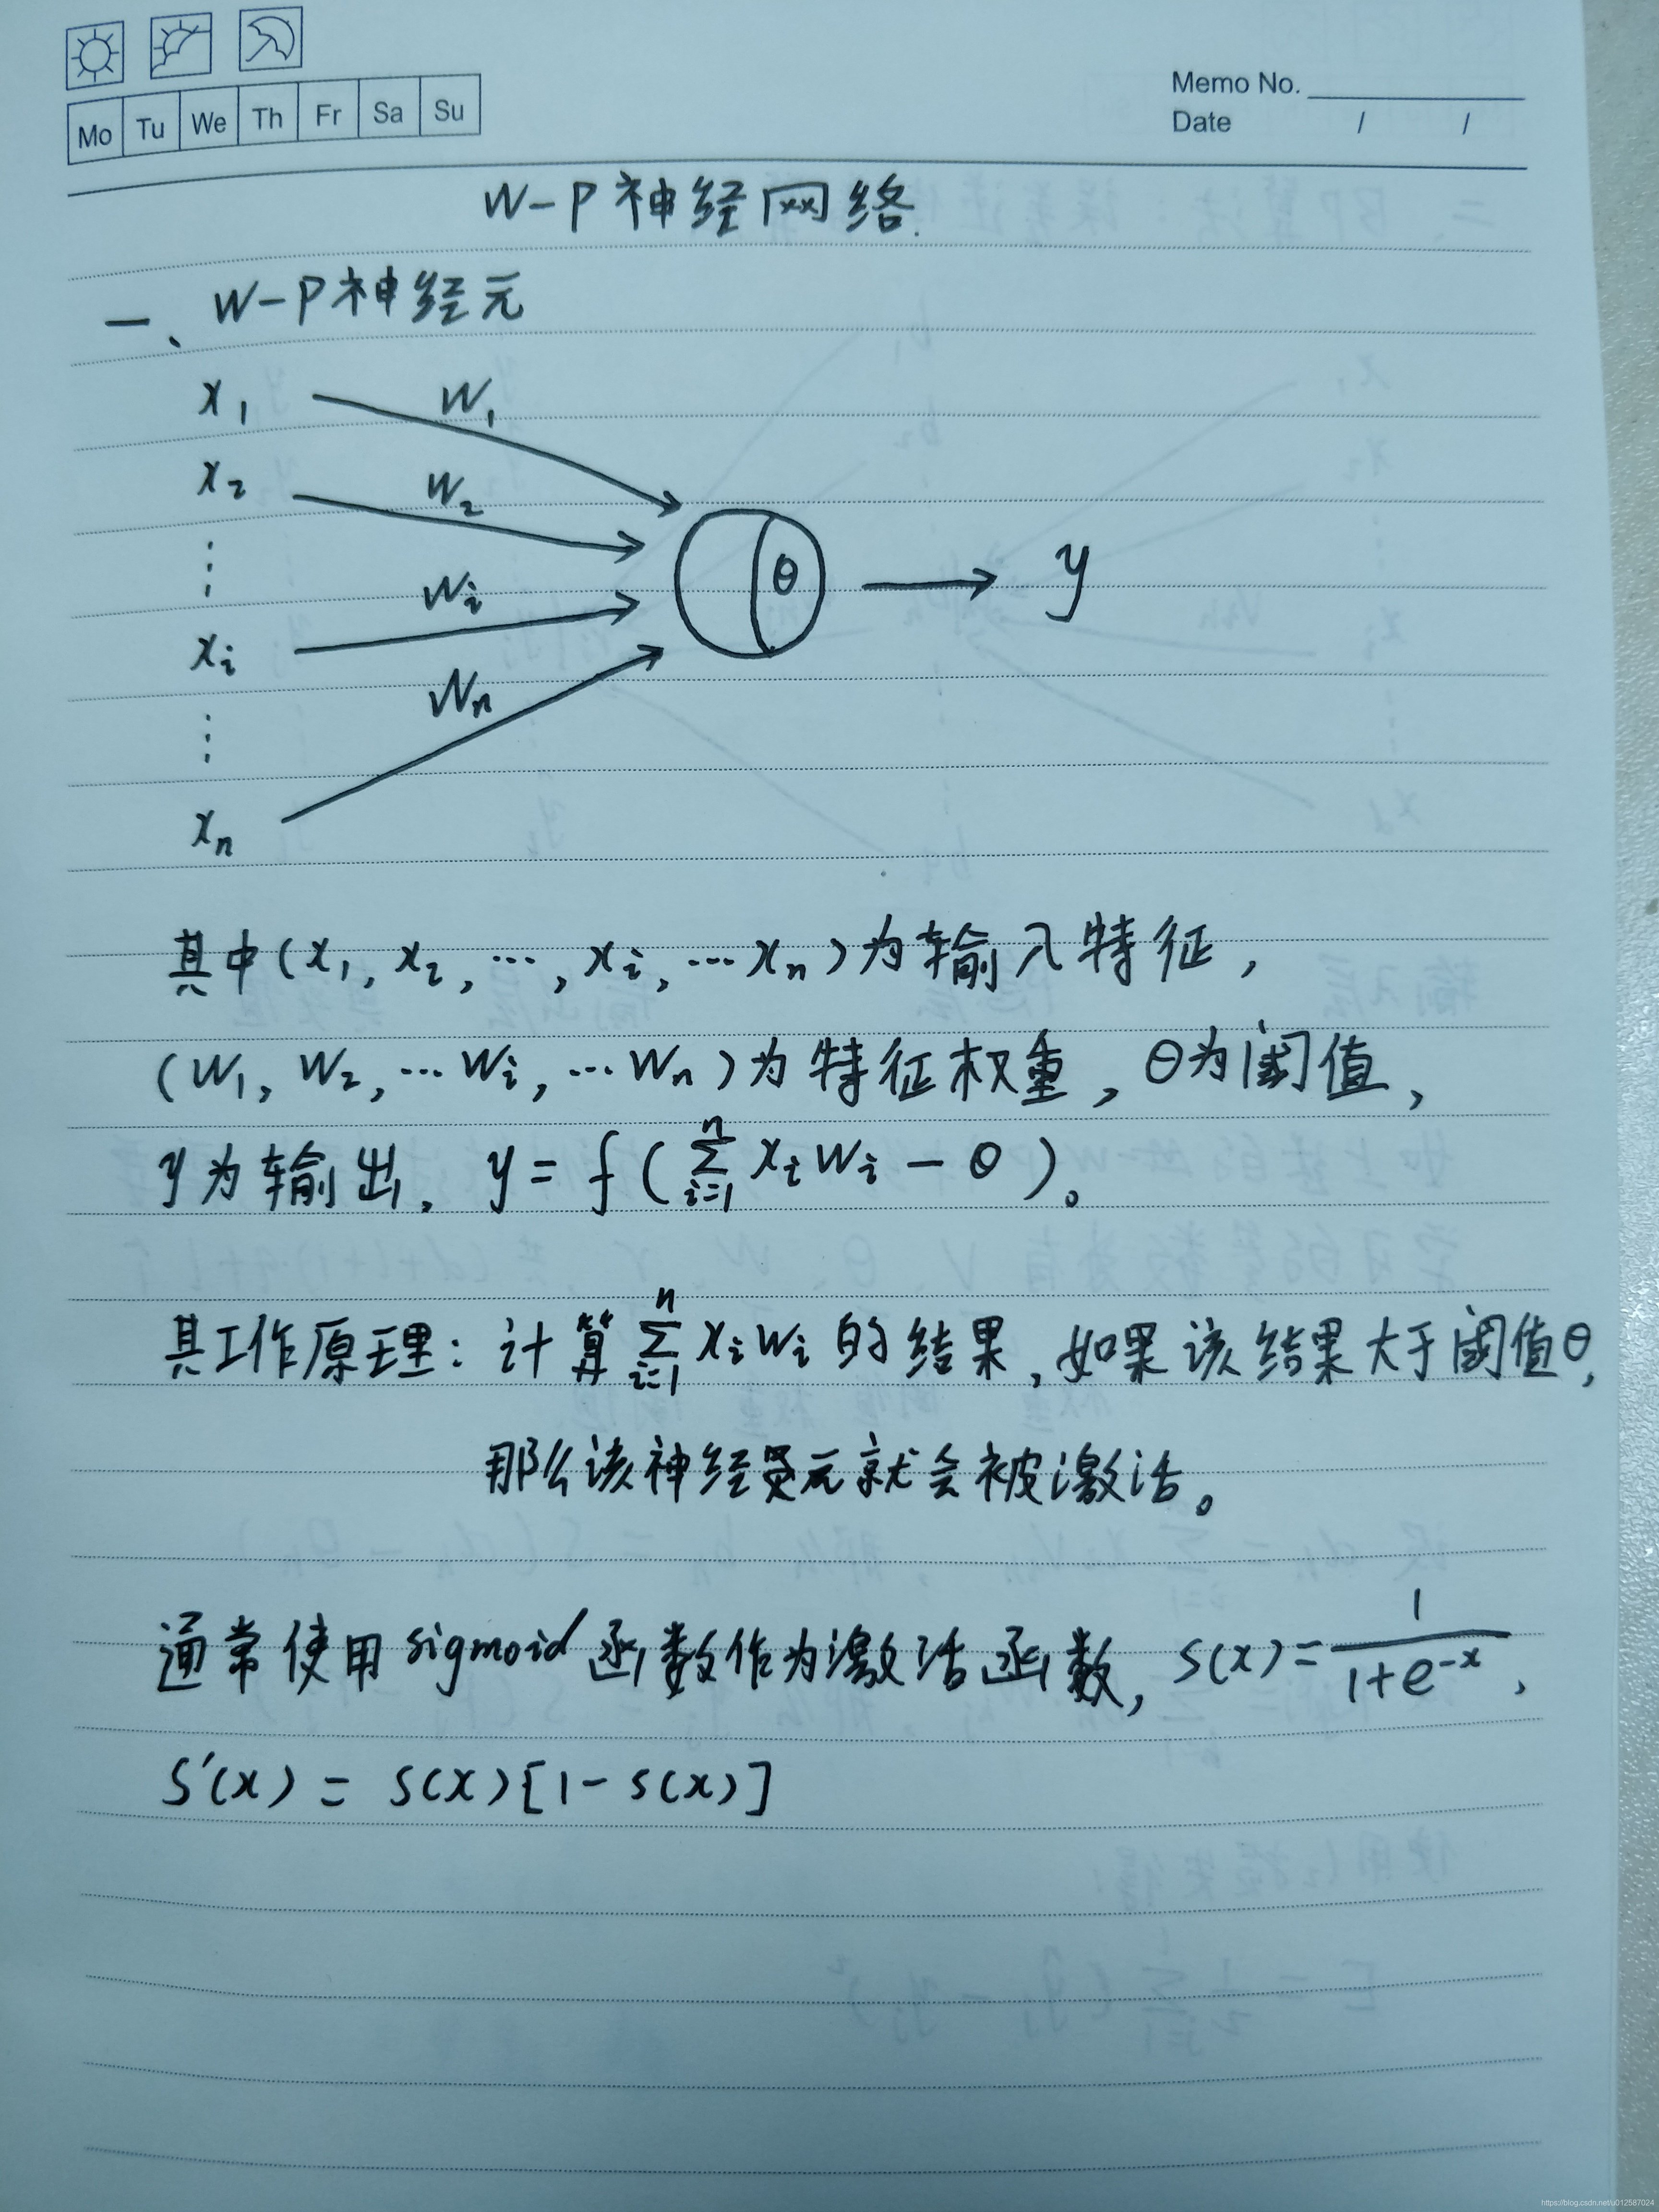 Mo Tu We Th Fr Sa Su
Memo No.
Date / /
W-P神经网络.
一、W-P神经元
x₁ W₁
x₂ W₂
⋮
xᵢ Wᵢ
θ → y
⋮
xₙ Wₙ
其中(x₁, x₂, ⋯, xᵢ, ⋯xₙ)为输入特征,
(W₁, W₂, ⋯Wᵢ, ⋯Wₙ)为特征权重, θ为阈值,
y为输出, y = f(∑ⁿᵢ₌₁ xᵢwᵢ - θ)。
其工作原理: 计算∑ⁿᵢ₌₁ xᵢwᵢ的结果, 如果该结果大于阈值θ,
那么该神经元就会被激活。
通常使用sigmoid函数作为激活函数, S(x)=1/(1+e⁻ˣ),
S′(x) = S(x)[1-S(x)]
https://blog.csdn.net/u012587024